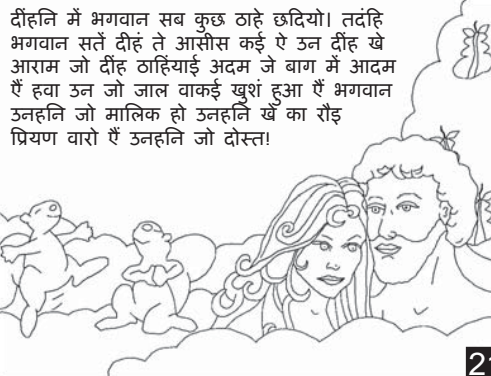 दींहनि में भगवान सब कुछ ठाहे छदियो। तदंहि
भगवान सतें दीहं ते आसीस कई ऐ उन दींह खे
आराम जो दींह ठाहिंयाई अदम जे बाग में आदम
ऐं हवा उन जो जाल वाकई खुशं हुआ ऐं भगवान
उनहनि जो मालिक हो उनहनि खें का रौइ
प्रियण वारो ऐं उनहनि जो दोस्त!